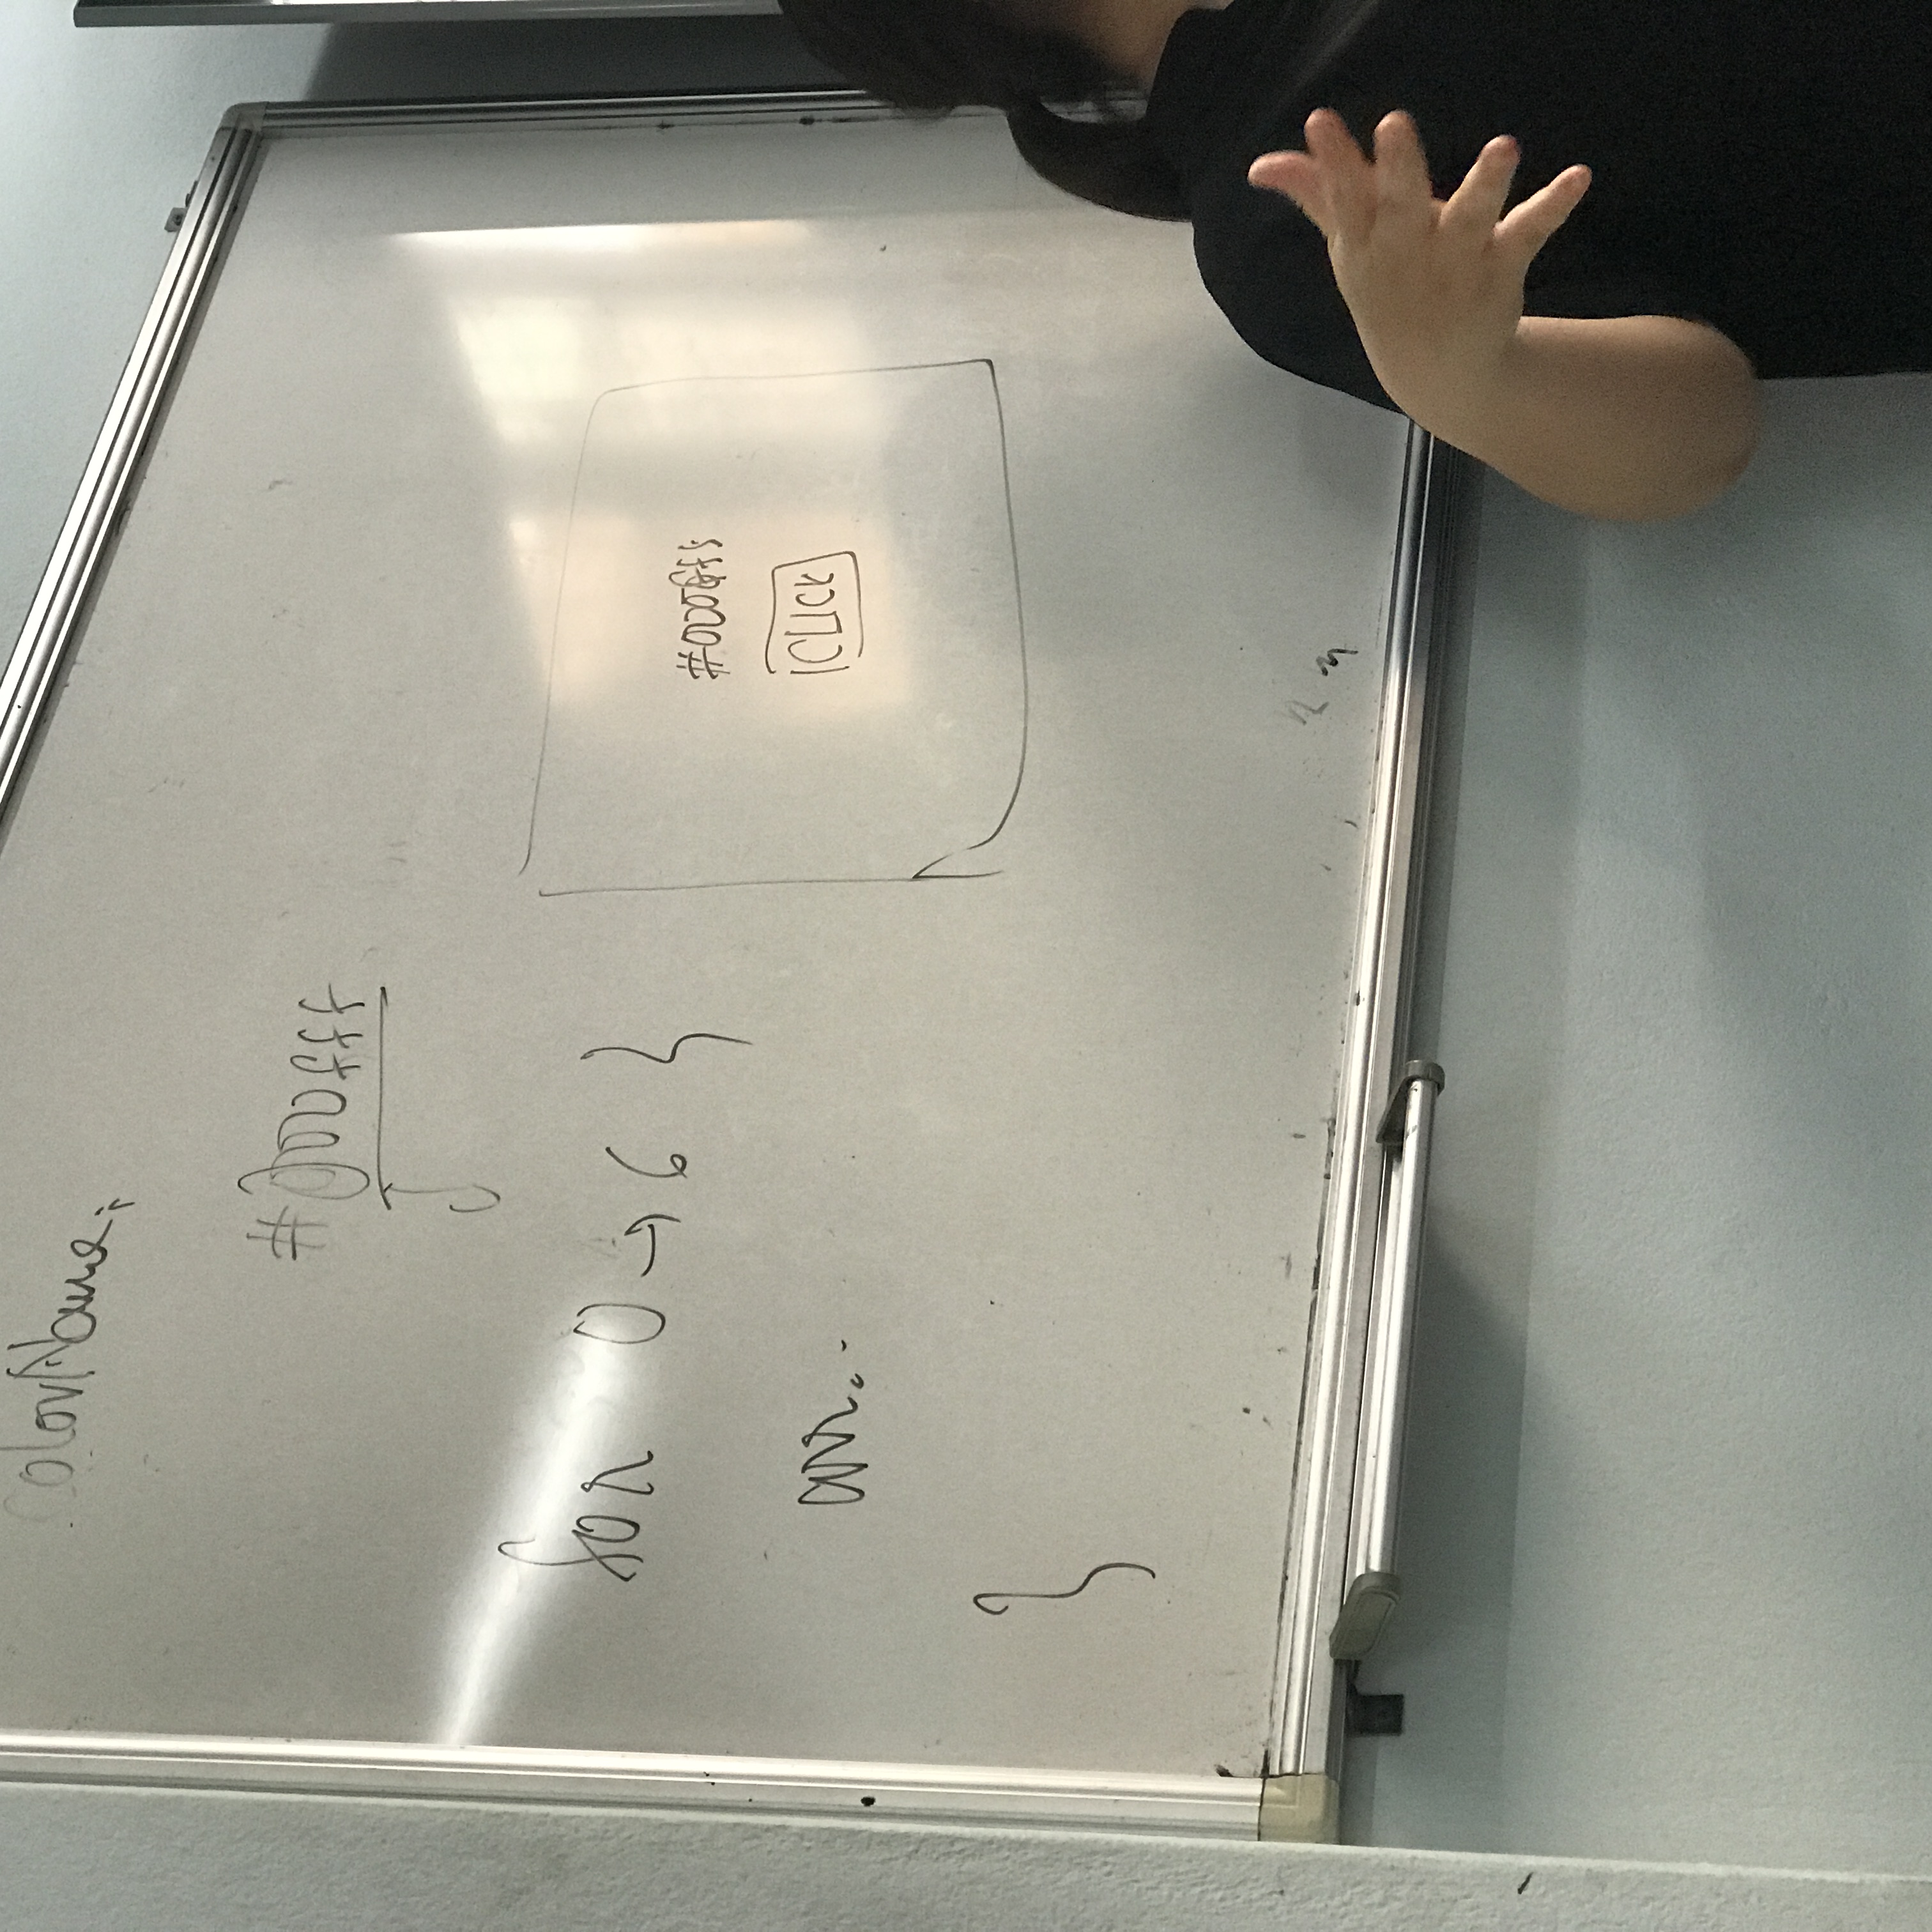 colorName;
#000fff
for 0 → 6 }
arr..
}
#000fff
CLICK